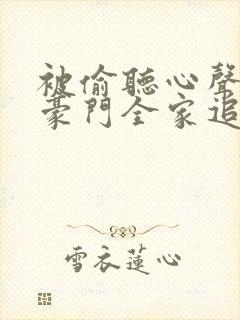 被偷聽心聲
豪門全家追
雪衣蓮心